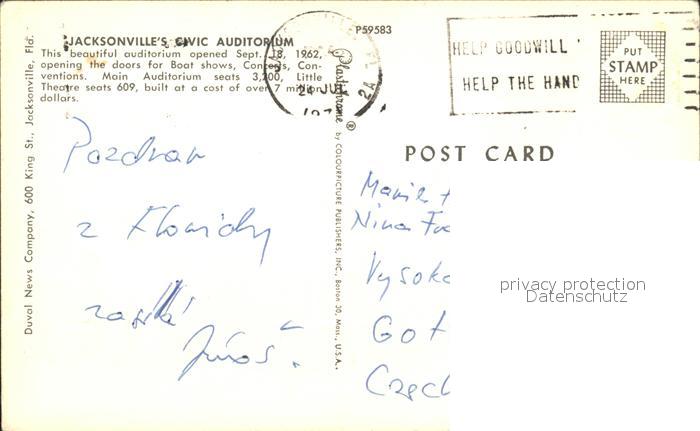 JACKSONVILLE'S CIVIC AUDITORIUM
This beautiful auditorium opened Sept. 18, 1962,
opening the doors for Boat shows, Concerts, Con-
ventions. Main Auditorium seats 3,200, Little
Theatre seats 609, built at a cost of over 7 million
dollars.
Pozdrav
z Floridy
zasílá
Duval News Company, 600 King St., Jacksonville, Fld.
Plastichrome ® by COLOURPICTURE PUBLISHERS, INC., Boston 30, Mass., U.S.A.
P59583
24 JUL
2A
HELP GOODWILL
HELP THE HAND
PUT
STAMP
HERE
POST CARD
Marie +
Nina
Vysoke
Got
Czech
privacy protection
Datenschutz